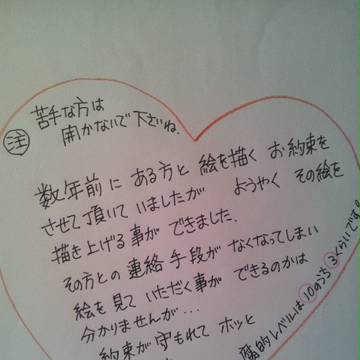 苦手な方は
注
開かないで下さいね。
数年前に ある方と 絵を描く お約束を
させて頂いていましたが ようやく その絵を
描き上げる事が できました.
その方との 連絡手段が なくなってしまい
絵を見て いただく事が できるのかは
分かりませんが…
約束が守もれて ホッと
的レベルは⑩のうち③くらいです。